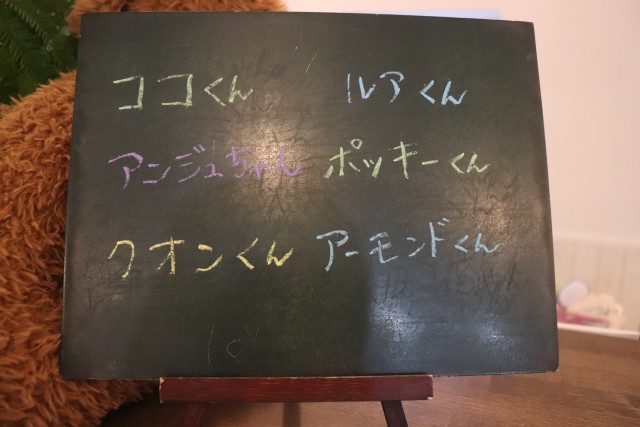 ココくん ルアくん
アンジュちゃん ポッキーくん
クオンくん アーモンドくん